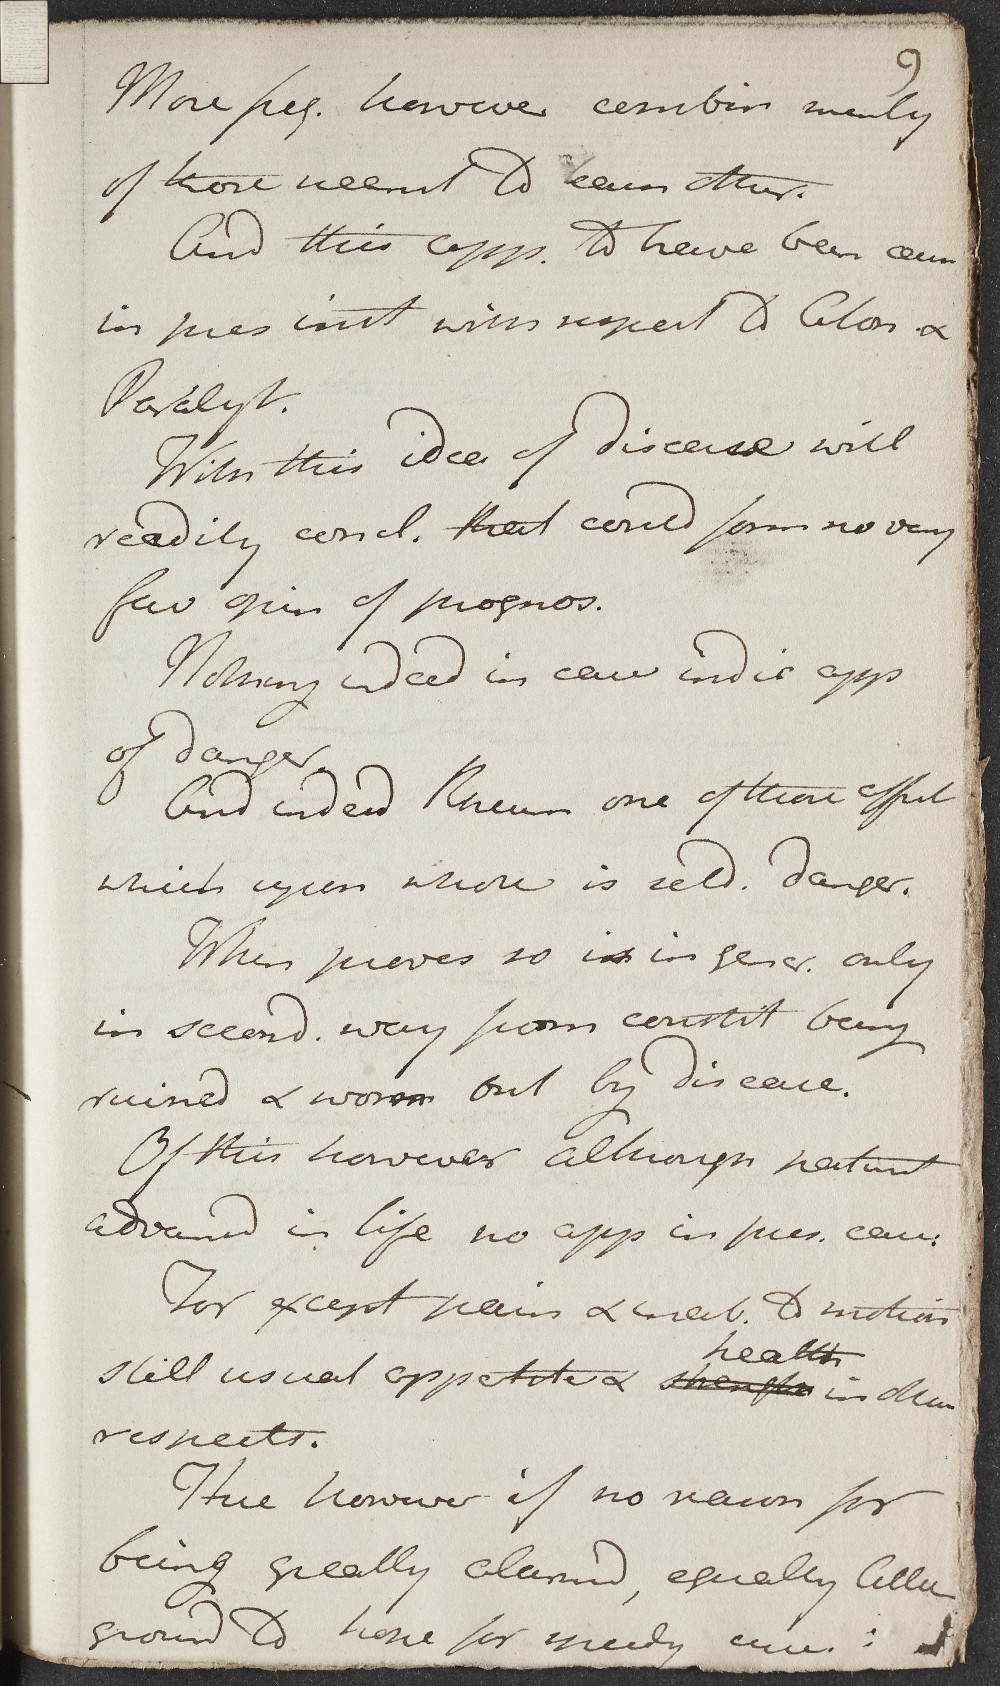 9
More freq. however combin merely
of those meant to each other.
And this app. to have been case
in pres inst with respect to Alon &
Paralyt.
With this idea of disease will
readily concl. that could form no very
fav opin of prognos.
Nothing indeed in case indic app
of danger.
And indeed Rheum one of those affect
which upon whole is seld. danger.
When proves so is in gener. only
in second. way from constit being
ruined & worn out by disease.
Of this however although patient
advanced in life no app in pres. case.
For except pain & inab. to motion
still usual appetite & health in other
respects.
Here however if no reason for
being greatly alarmed, equally little
ground to hope for speedy cure. :